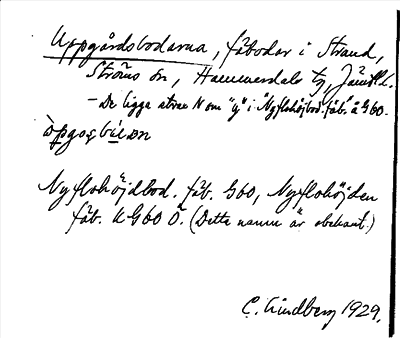 Uppgårdsbodarna, fäbodar i Strand,
Ströms sn, Hammerdals tg, Jämtl. l.
— De ligga strax N om "y" i "Nyflohöjdbod. fäb." å G60.
Nyflohöjdbod. fäb. G60, Nyflohöjden
fäb. K G60 Ö. (Detta namn är obekant.)
C. Lindberg 1929.